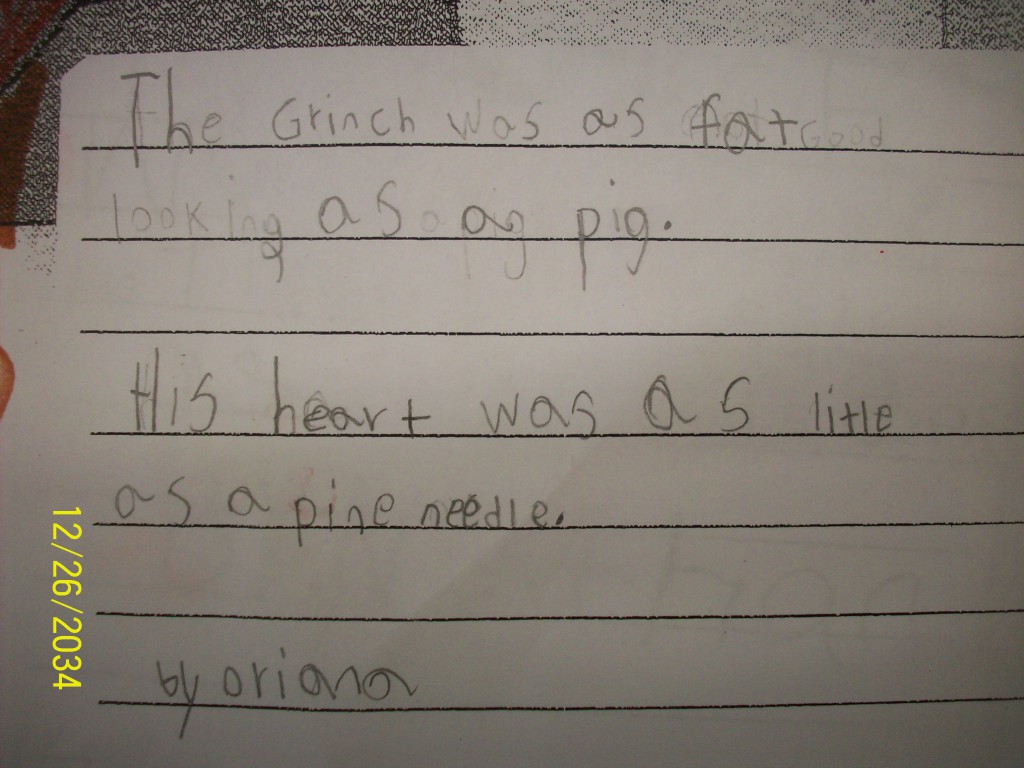 The Grinch was as fat Good
looking as a pig.
His heart was as little
as a pine needle.
by oriana
12/26/2034